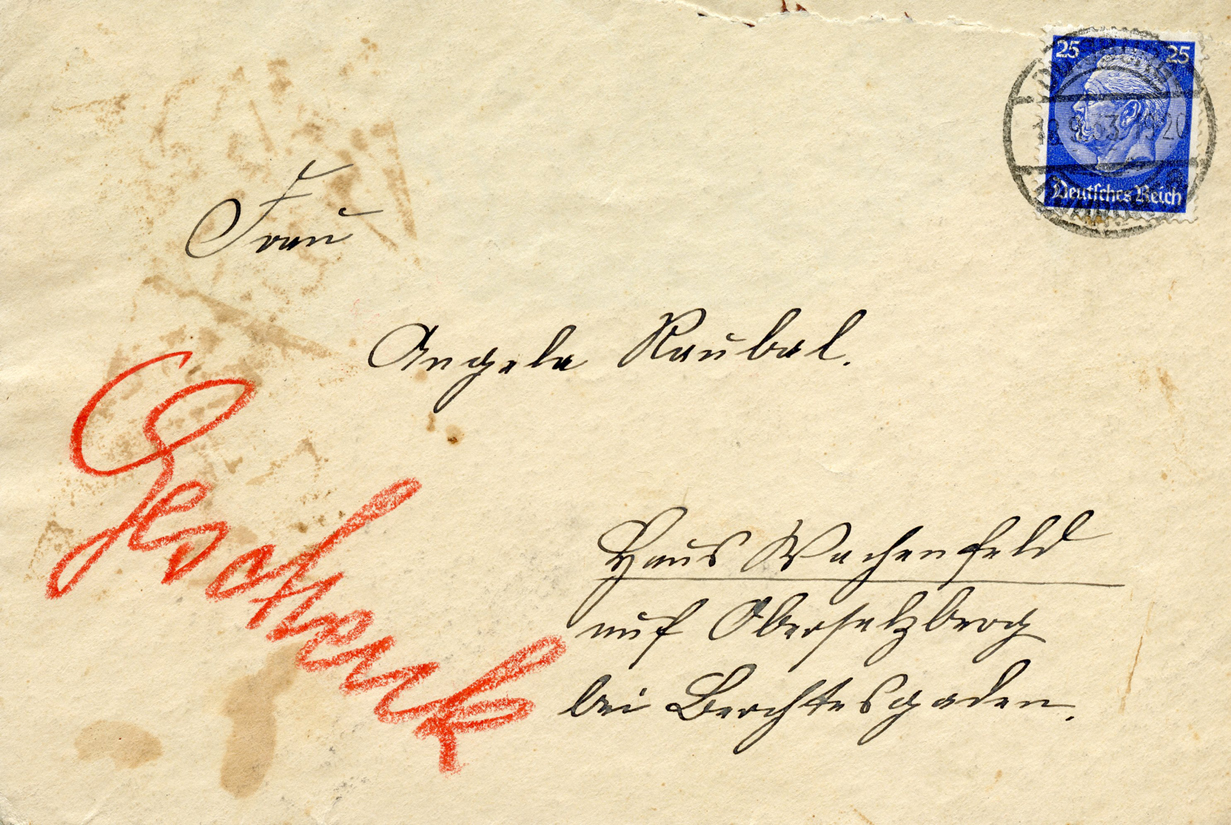 25 25
Deutsches Reich
Frau
Angela Raubal.
Geschenk
Haus Wachenfeld
auf Obersalzberg
bei Berchtesgaden.